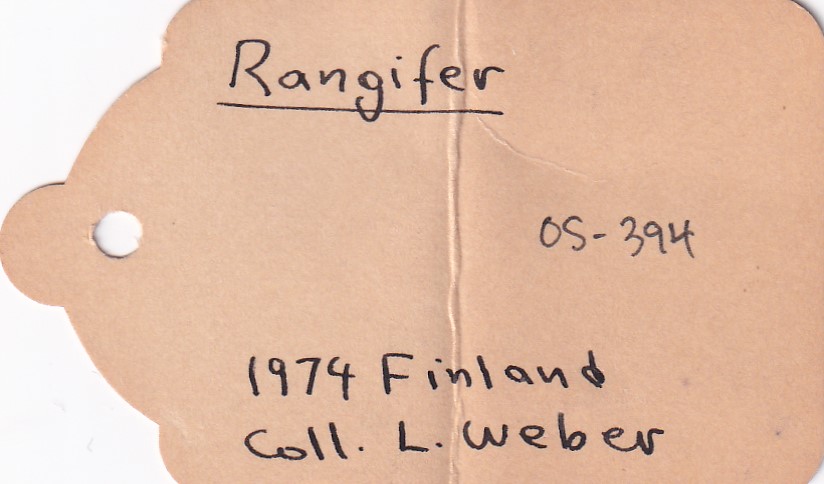 Rangifer
OS-394
1974 Finland
Coll. L. Weber